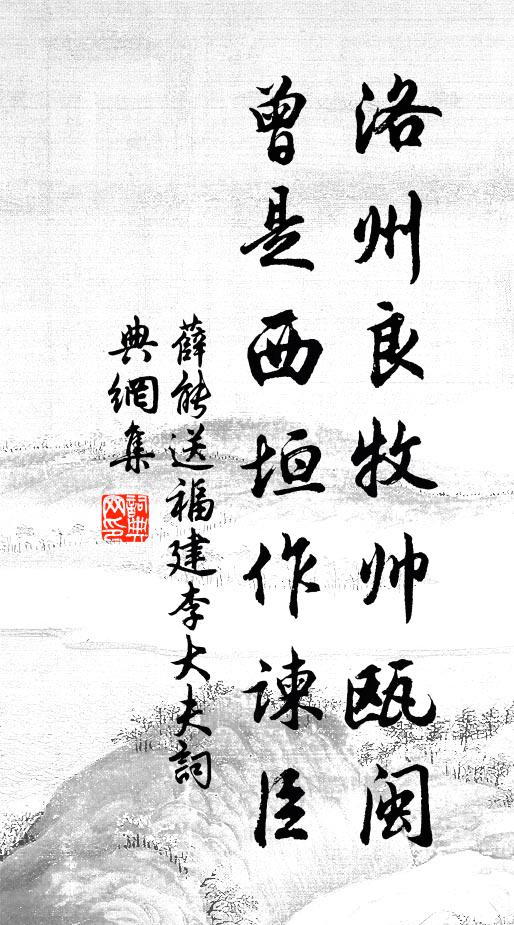 洛州良牧帅瓯闽
曾是西垣作諫臣
薛能送福建李大夫詞
典網集
詞典網印